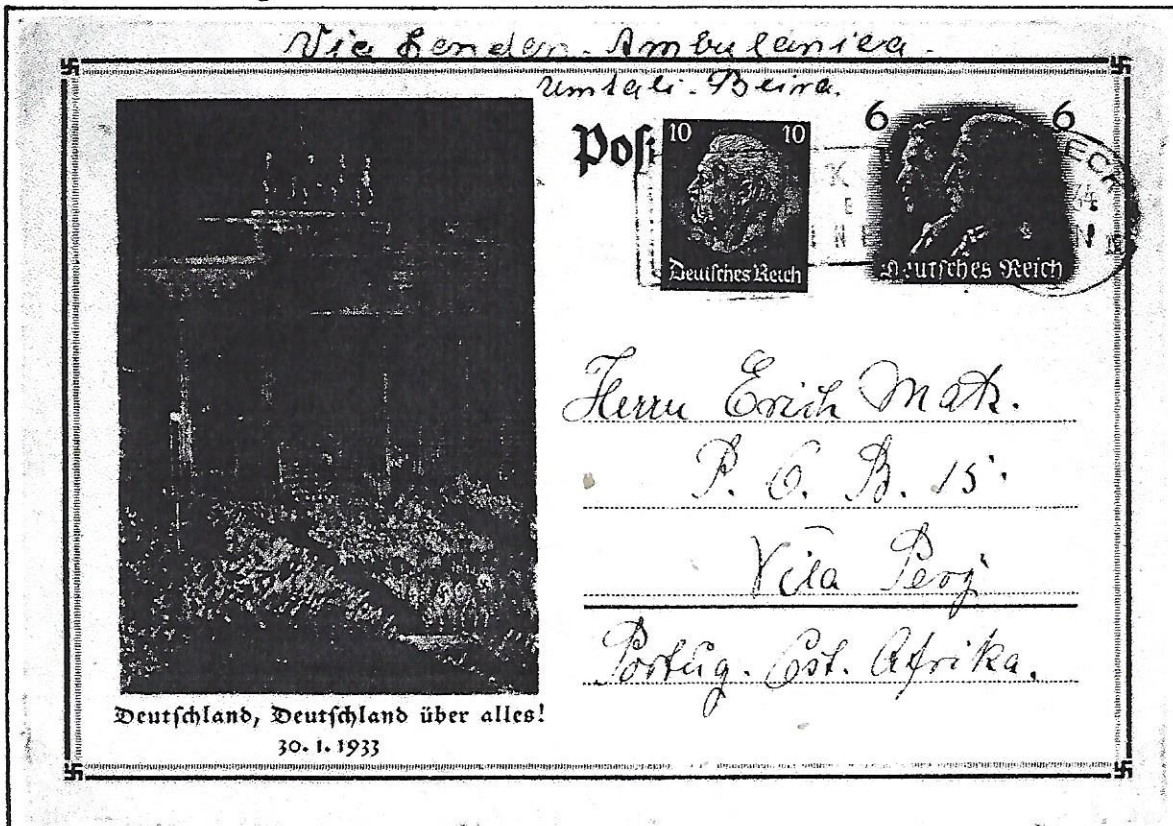 Via London - Ambulancia -
Umtali - Beira.
10 10
Deutsches Reich
6 6
Deutsches Reich
Herrn Erich Matz.
P. O. B. 15.
Vila Pery
Portug. Ost. Afrika.
Deutschland, Deutschland über alles!
30. 1. 1933